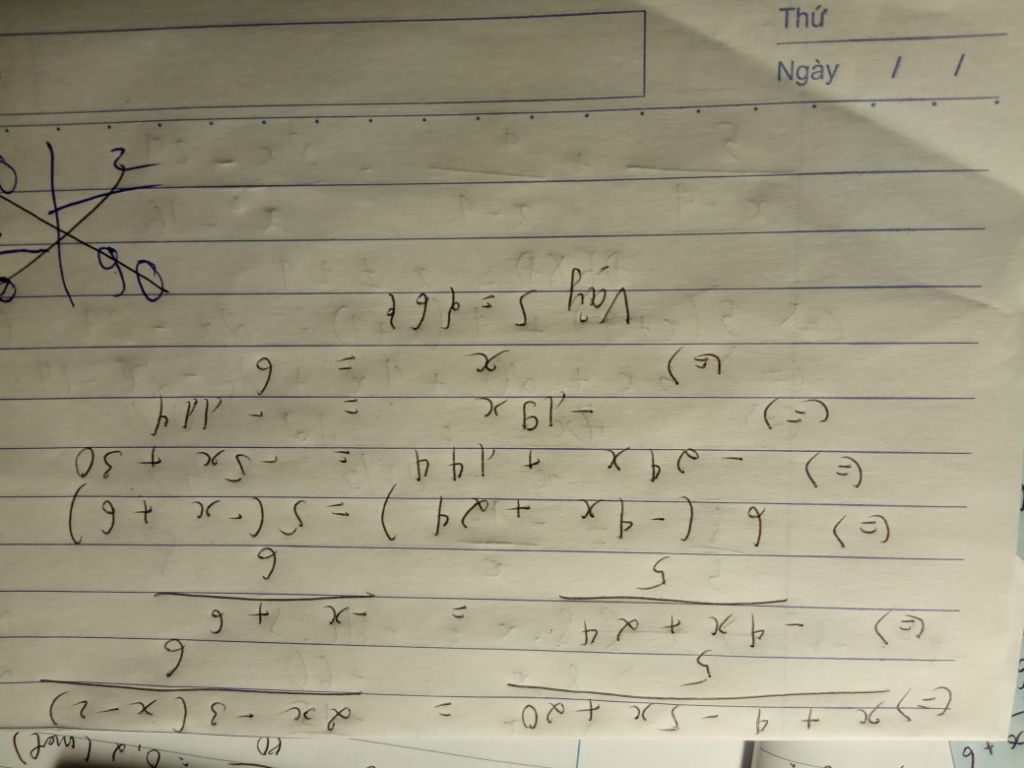 Thứ
Ngày / /
x + 6
0,2 (mol)
(=) x + 4 - 5x + 20 / 5 = 2x - 3(x - 2) / 6
(=) -4x + 24 / 5 = -x + 6 / 6
(=) 6 (-4x + 24) = 5 (-x + 6)
(=) -24x + 144 = -5x + 30
(=) -19x = -114
(=) x = 6
Vậy S = {6}